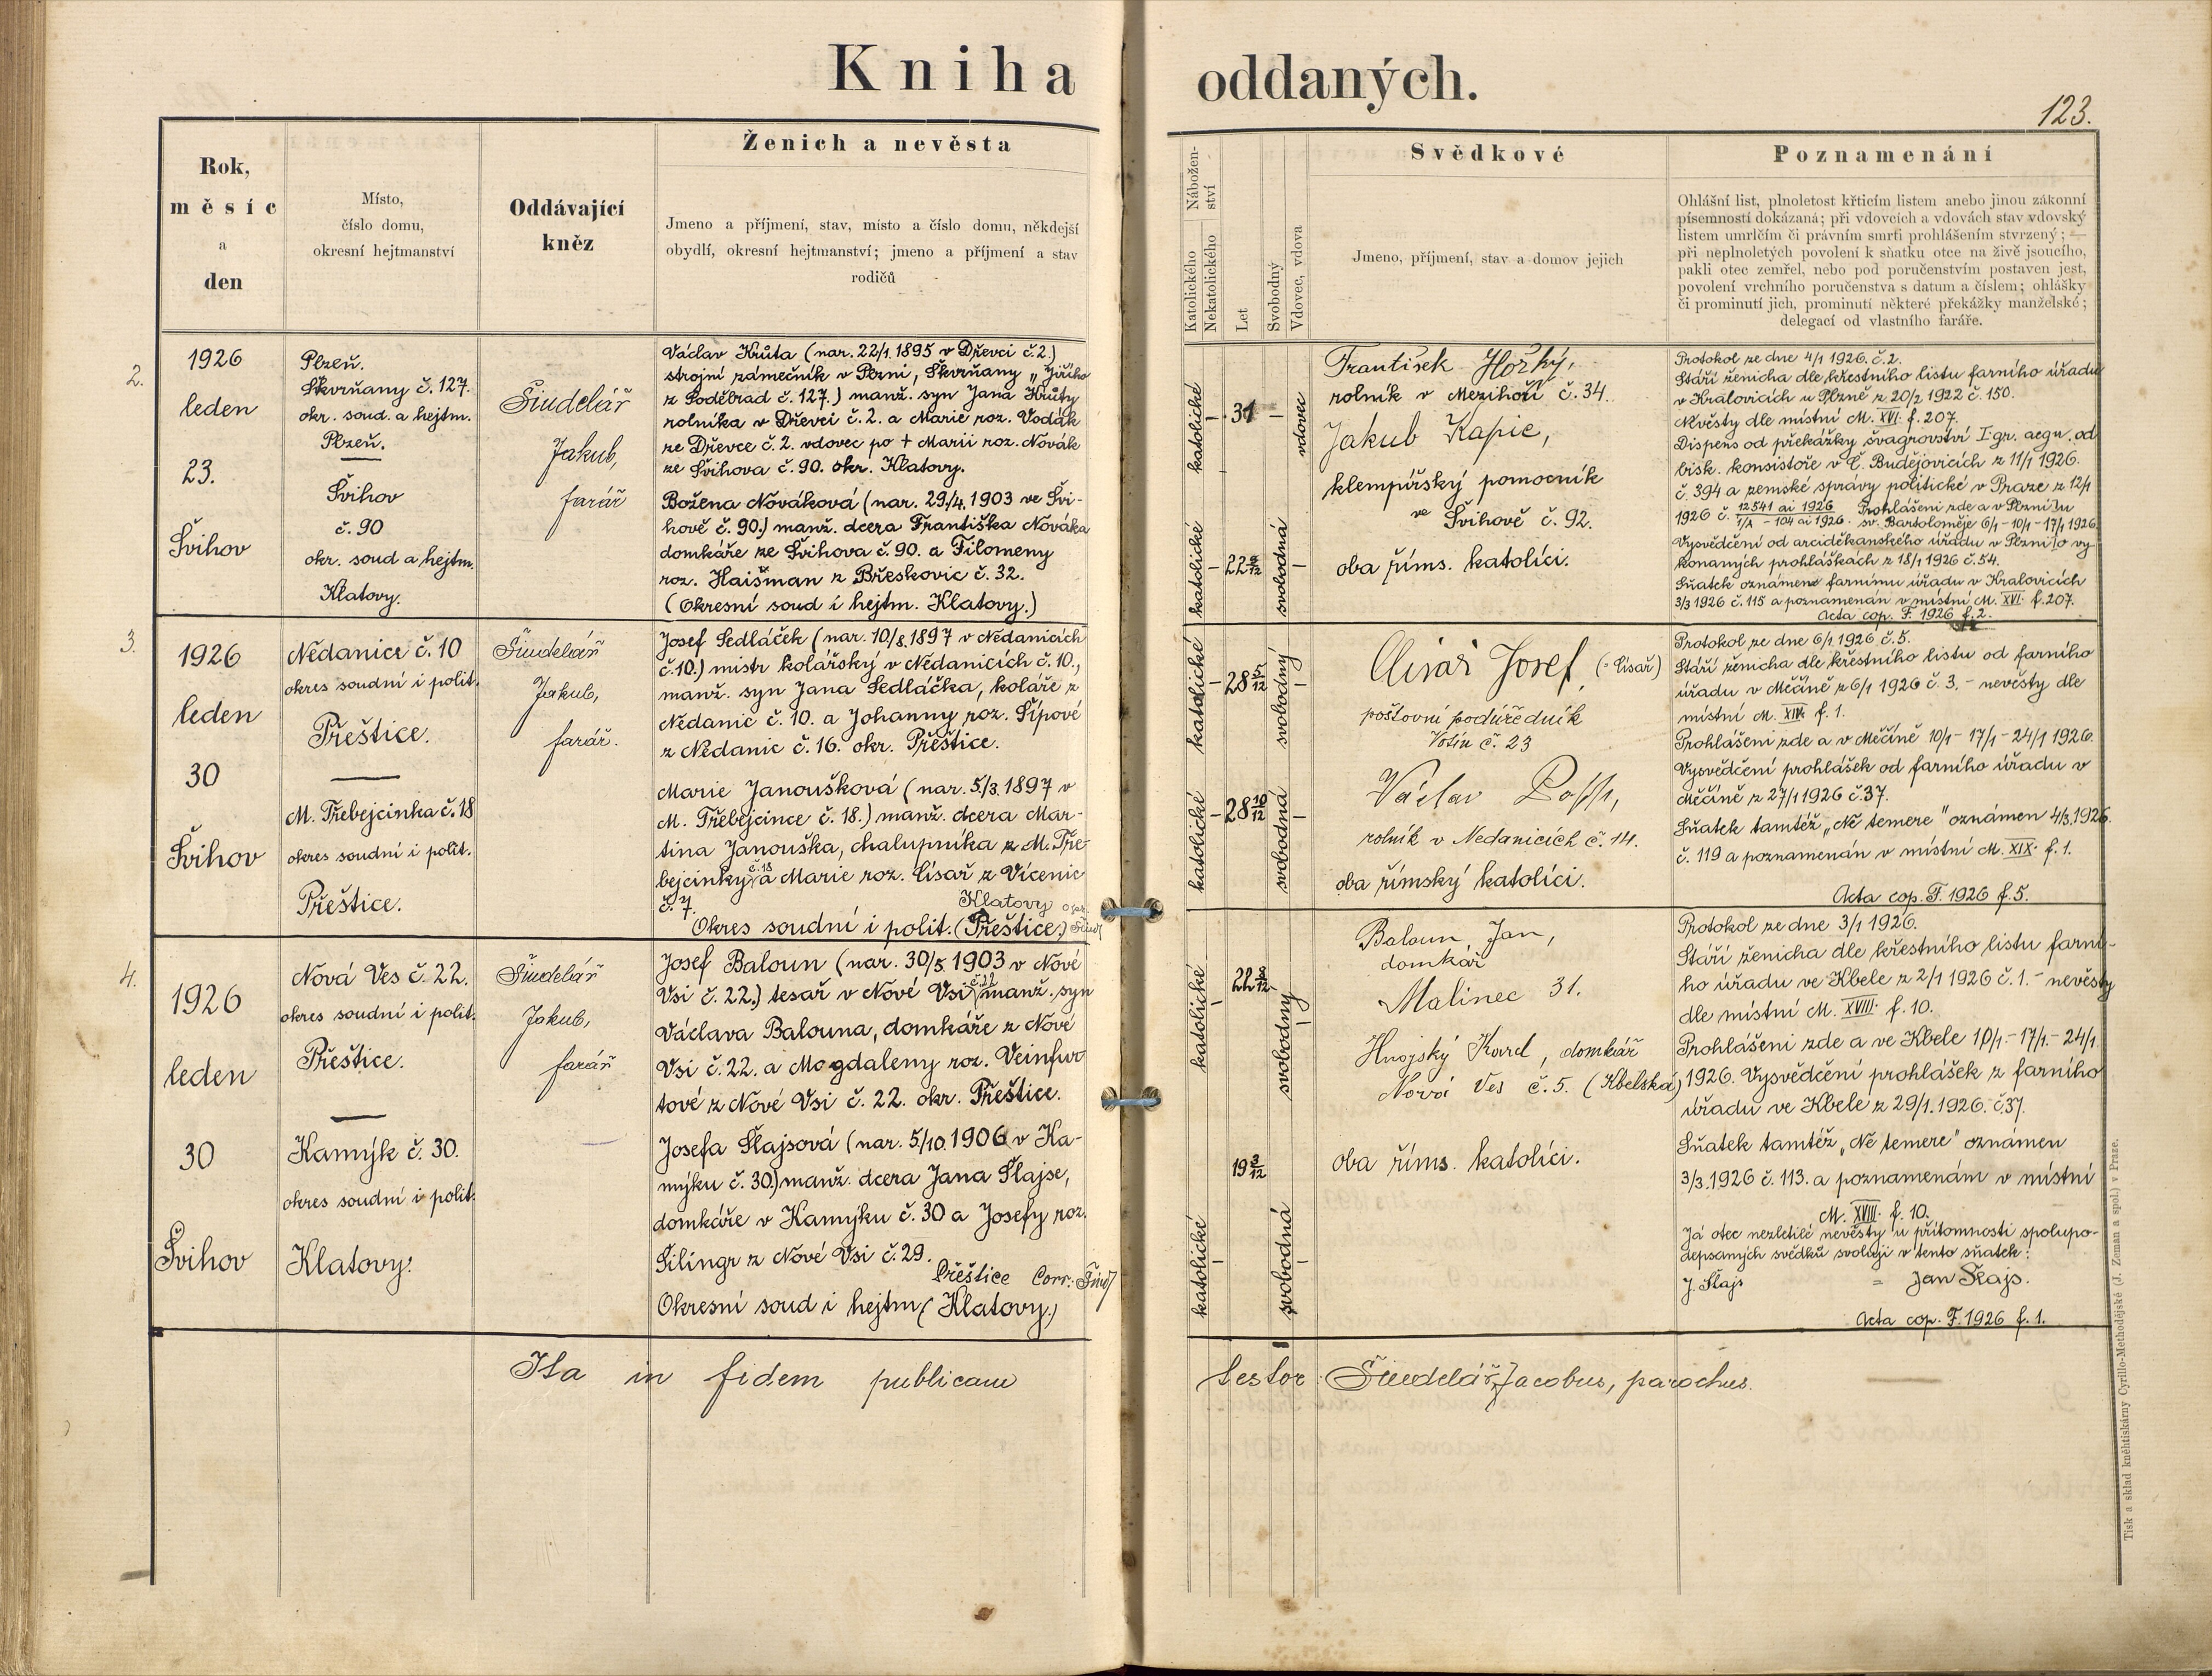 Kniha oddaných.
123.
Rok,
měsíc
a
den
Místo,
číslo domu,
okresní hejtmanství
Oddávající
kněz
Ženich a nevěsta
Jmeno a příjmení, stav, místo a číslo domu, někdejší
obydlí, okresní hejtmanství; jmeno a příjmení a stav
rodičů
Nábožen-
ství
Katolického
Nekatolického
Let
Svobodný
Vdovec, vdova
Svědkové
Jmeno, příjmení, stav a domov jejich
Poznamenání
Ohlášní list, plnoletost křticím listem anebo jinou zákonní
písemností dokázaná; při vdovcích a vdovách stav vdovský
listem umrlčím či právním smrti prohlášením stvrzený; —
při neplnoletých povolení k sňatku otce na živě jsoucího,
pakli otec zemřel, nebo pod poručenstvím postaven jest,
povolení vrchního poručenstva s datum a číslem; ohlášky
či prominutí jich, prominutí některé překážky manželské;
delegací od vlastního faráře.
2.
1926
leden
23.
Švihov
Plzeň.
Škvrňany č. 127.
okr. soud. a hejtm.
Plzeň.
Švihov
č. 90
okr. soud a hejtm.
Klatovy.
Šindelář
Jakub,
farář
Václav Krůta (nar. 22/1. 1895 v Dřevci č. 2.)
strojní zámečník v Plzni, Škvrňany „Jiřího
z Poděbrad č. 127.) manž. syn Jana Krůty
rolníka v Dřevci č. 2. a Marie roz. Vodák
ze Dřevce č. 2. vdovec po + Marii roz. Novák
ze Švihova č. 90. okr. Klatovy.
Božena Nováková (nar. 29./4. 1903 ve Švi-
hově č. 90.) manž. dcera Františka Nováka
domkáře ze Švihova č. 90. a Filomeny
roz. Haišman z Břeskovic č. 32.
(Okresní soud i hejtm. Klatovy.)
katolické
31
vdovec
katolické
22 8/12
svobodná
František Hořký,
rolník v Mezihoří č. 34.
Jakub Kapic,
klempířský pomocník
ve Švihově č. 92.
oba říms. katolíci.
Protokol ze dne 4/1 1926. č. 2.
Stáří ženicha dle křestního listu farního úřadu
v Kralovicích u Plzně z 20/2 1922 č. 150.
Nevěsty dle místní M. XVI. f. 207.
Dispens od překážky švagrovství I gr. aequ. od
bisk. konsistoře v Č. Budějovicích z 11/1 1926.
č. 394 a zemské správy politické v Praze z 12/1
1926 č. 12541 ai 1926 Prohlášeni zde a v Plzni/u
7/A - 104 ai 1926. sv. Bartoloměje 6/1 - 10/1 - 17/1 1926.
Vysvědčení od arciděkanského úřadu v Plzni/o vy
konaných prohláškách z 18/1 1926 č. 54.
Sňatek oznámen farnímu úřadu v Kralovicích
3/3 1926 č. 115 a poznamenán v místní M. XVI. f. 207.
Acta cop. F. 1926 f. 2.
3.
1926
leden
30
Švihov
Nedanice č. 10
okres soudní i polit.
Přeštice.
M. Třebejcinka č. 18
okres soudní i polit.
Přeštice.
Šindelář
Jakub,
farář.
Josef Sedláček (nar. 10./8. 1897 v Nedanicích
č. 10.) mistr kolářský v Nedanicích č. 10.,
manž. syn Jana Sedláčka, koláře z
Nedanic č. 10. a Johanny roz. Šípové
z Nedanic č. 16. okr. Přeštice.
Marie Janoušková (nar. 5./3. 1897 v
M. Třebejcince č. 18.) manž. dcera Mar-
tina Janouška, chalupníka z M. Tře-
bejcinky č. 18 a Marie roz. Lísař z Vícenic
č. 7.
Klatovy
Okres soudní i polit. (Přeštice.)
katolické
28 5/12
svobodný
katolické
28 10/12
svobodná
Josef (= Lisař)
poštovní podúředník
č. 23
Václav
rolník v Nedanicích č. 14.
oba římský katolíci.
Protokol ze dne 6/1 1926 č. 5.
Stáří ženicha dle křestního listu od farního
úřadu v Měčíně z 6/1 1926 č. 3. - nevěsty dle
místní M. XIX. f. 1.
Prohlášeni zde a v Měčíně 10/1 - 17/1 - 24/1 1926.
Vysvědčení prohlášek od farního úřadu v
Měčíně z 27/1 1926 č. 37.
Sňatek tamtéž „Ne temere" oznámen 4/3. 1926.
č. 119 a poznamenán v místní M. XIX. f. 1.
Acta cop. F. 1926 f. 5.
4.
1926
leden
30
Švihov
Nová Ves č. 22.
okres soudní i polit.
Přeštice.
Kamýk č. 30.
okres soudní i polit.
Klatovy.
Šindelář
Jakub,
farář
Josef Baloun (nar. 30/5. 1903 v Nové
Vsi č. 22.) tesař v Nové Vsi č. 22 manž. syn
Václava Balouna, domkáře z Nové
Vsi č. 22. a Magdaleny roz. Veinfur
tové z Nové Vsi č. 22. okr. Přeštice.
Josefa Šlajsová (nar. 5./10. 1906 v Ka-
mýku č. 30.) manž. dcera Jana Šlajse,
domkáře v Kamýku č. 30 a Josefy roz.
Šilingr z Nové Vsi č. 29.
Přeštice Corr: Šind
Okresní soud i hejtm. (Klatovy.)
katolické
22 8/12
svobodný
katolické
19 3/12
svobodná
Baloun Jan,
domkář
Malinec 31.
Hnojský Karel, domkář
Nová Ves č. 5. (Kbelská)
oba říms. katolíci.
Protokol ze dne 3/1 1926.
Stáří ženicha dle křestního listu farní-
ho úřadu ve Kbele z 2/1 1926 č. 1. - nevěsty
dle místní M. XVIII. f. 10.
Prohlášeni zde a ve Kbele 10/1. - 17/1. - 24/1.
1926. Vysvědčení prohlášek z farního
úřadu ve Kbele z 29/1. 1926. č. 37.
Sňatek tamtéž „Ne temere" oznámen
3/3. 1926 č. 113. a poznamenám v místní
M. XVIII. f. 10.
Já otec nezletilé nevěsty u přítomnosti spolupo-
depsaných svědků svoluji v tento sňatek:
J Šlajs = Jan Šlajs.
Acta cop. F. 1926 f. 1.
Ita in fidem publicam testor: Šindelář Jacobus, parochus.
Tisk a sklad kněhtiskárny Cyrillo-Methodějské (J. Zeman a spol.) v Praze.